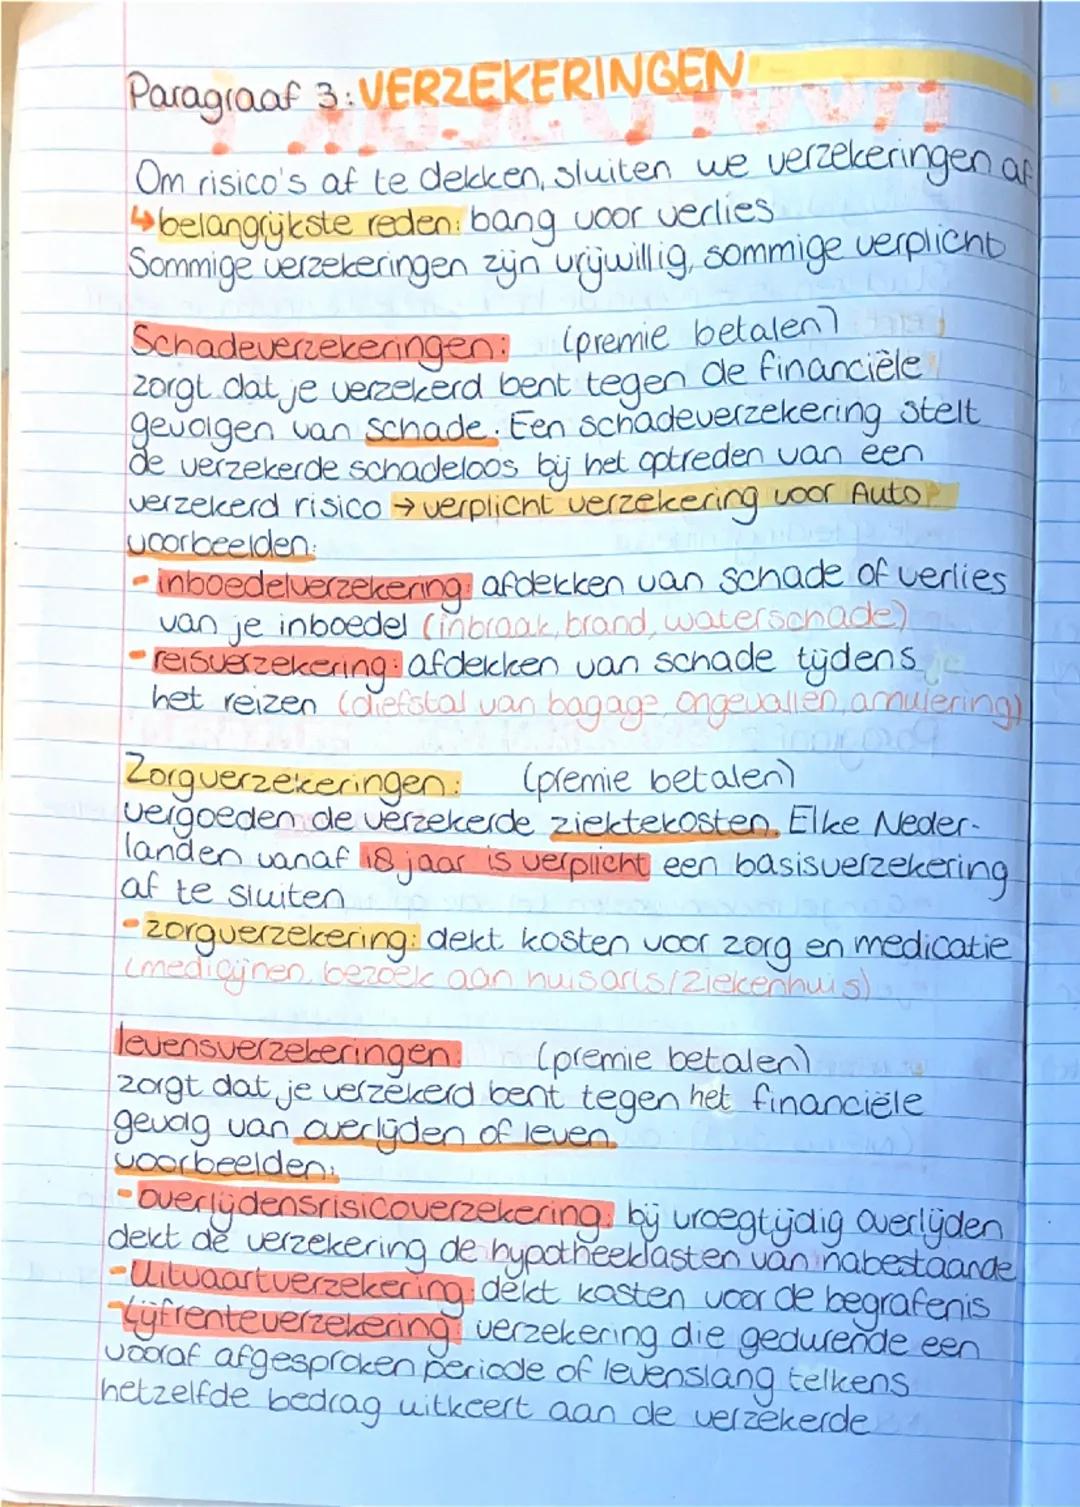 Paragraaf 3: VERZEKERINGEN
Om risico's af te dekken, sluiten we verzekeringen af
↳ belangrijkste reden: bang voor verlies
Sommige verzekeringen zijn vrijwillig, sommige verplicht
Schadeverzekeringen: (premie betalen)
zorgt dat je verzekerd bent tegen de financiële
gevolgen van schade. Een schadeverzekering stelt
de verzekerde schadeloos bij het optreden van een
verzekerd risico → verplicht verzekering voor Auto
voorbeelden:
- inboedelverzekering: afdekken van schade of verlies
van je inboedel (inbraak, brand, waterschade)
- reisverzekering: afdekken van schade tijdens
het reizen (diefstal van bagage, ongevallen, annulering)
Zorgverzekeringen: (premie betalen)
vergoeden de verzekerde ziektekosten. Elke Neder-
landen vanaf 18 jaar is verplicht een basisverzekering
af te sluiten
- zorgverzekering: dekt kosten voor zorg en medicatie
(medicijnen, bezoek aan huisarts/ziekenhuis)
levensverzekeringen: (premie betalen)
zorgt dat je verzekerd bent tegen het financiële
gevolg van overlijden of leven.
voorbeelden:
- overlijdensrisicoverzekering: bij vroegtijdig overlijden
dekt de verzekering de hypotheeklasten van nabestaande
- Uitvaartverzekering: dekt kosten voor de begrafenis
- Lijfrenteverzekering: verzekering die gedurende een
vooraf afgesproken periode of levenslang telkens
hetzelfde bedrag uitkeert aan de verzekerde